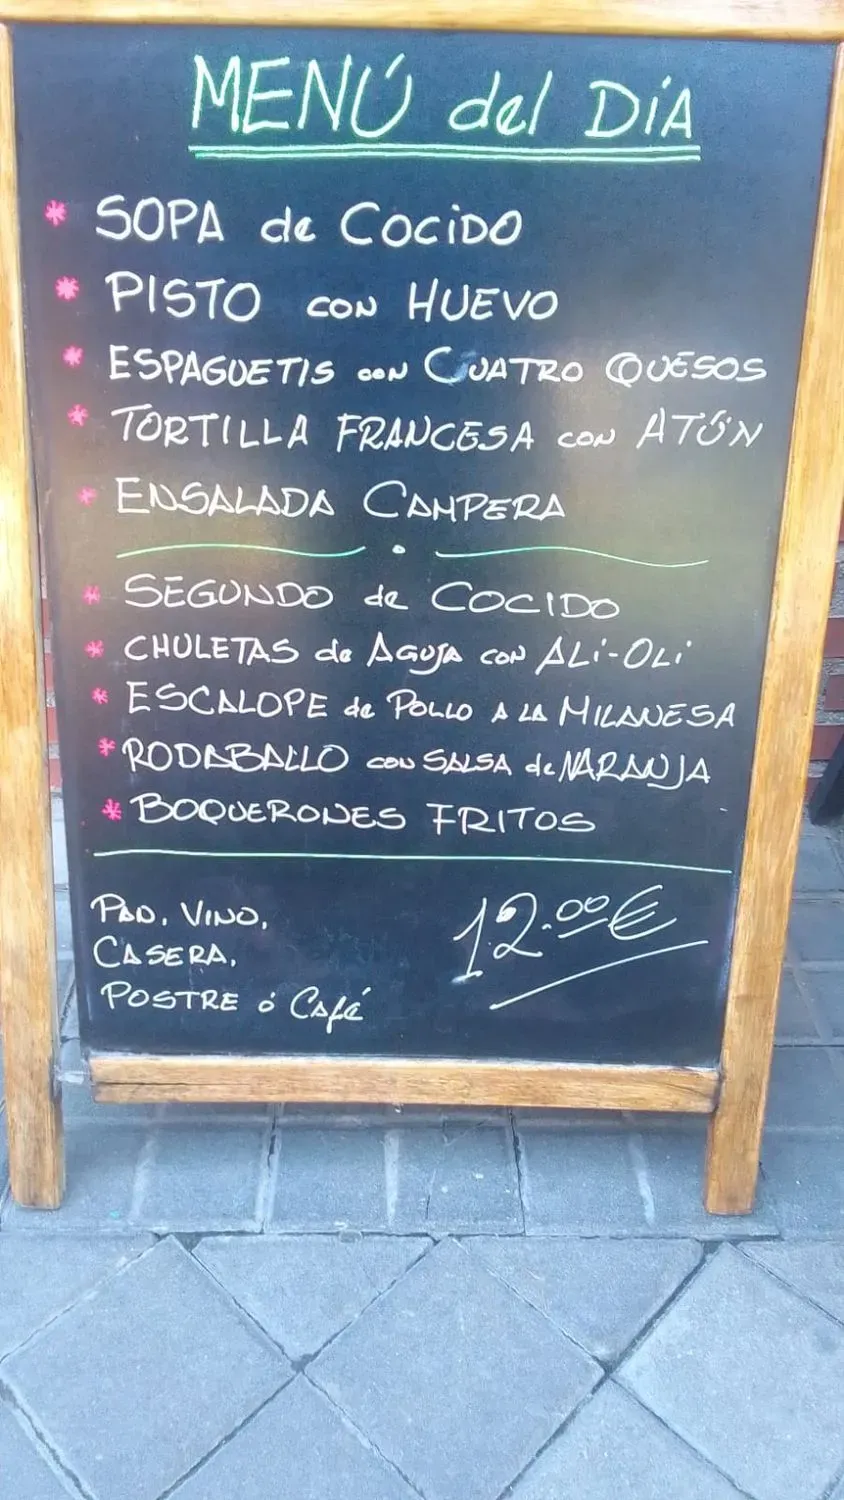 MENÚ del DÍA
* SOPA de COCIDO
* PISTO CON HUEVO
* ESPAGUETIS CON CUATRO QUESOS
* TORTILLA FRANCESA CON ATÚN
* ENSALADA CAMPERA
* SEGUNDO de COCIDO
* CHULETAS de AGUJA CON ALi-OLi
* ESCALOPE de POLLO A LA MILANESA
* RODABALLO CON SALSA de NARANJA
* BOQUERONES FRITOS
PAN, VINO,
CASERA,
POSTRE ó CAfé
12.00€